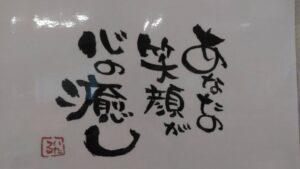 あなたの
笑顔が
心の
癒し